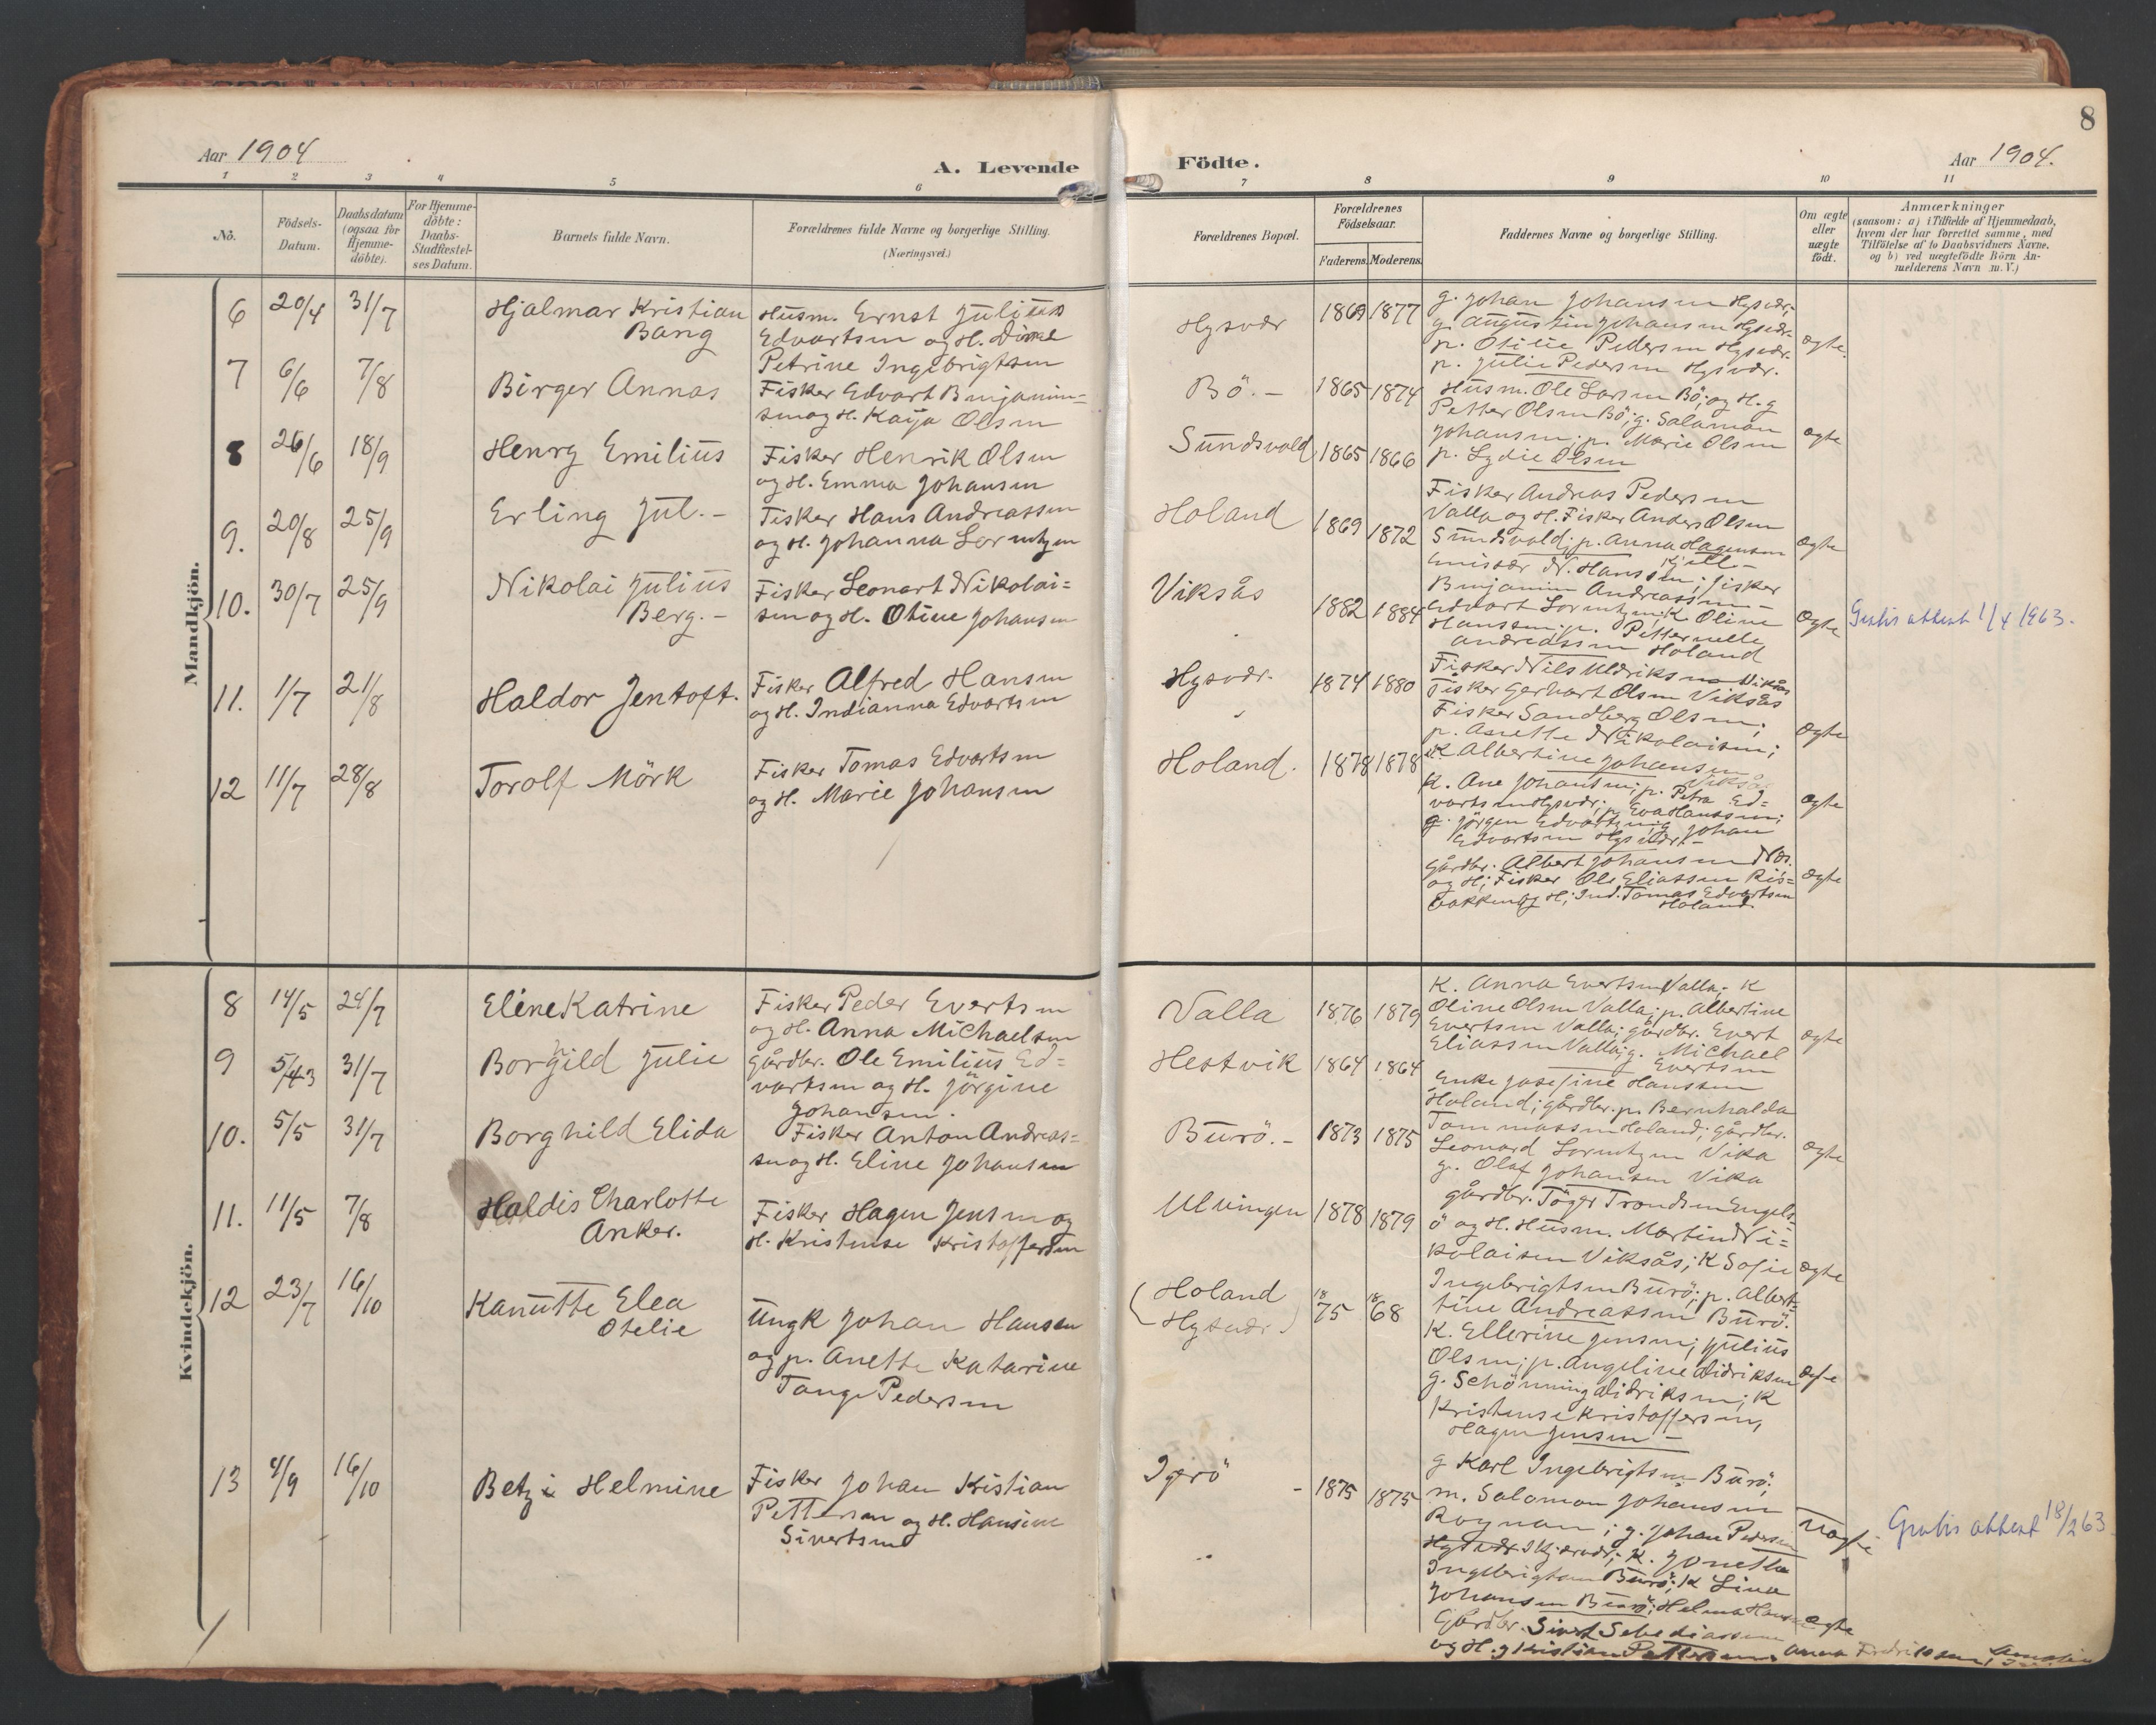 8
Aar 1904
A. Levende
Födte.
Aar 1904.
1 2 3 4 5 6 7 8 9 10 11
No.
Födsels-
Datum.
Daabsdatum
(ogsaa for
Hjemme-
döbte).
For Hjemme-
döbte:
Daabs-
Stadfæstel-
ses Datum.
Barnets fulde Navn.
Forældrenes fulde Navne og borgerlige Stilling.
(Næringsvei.)
Forældrenes Bopæl.
Forældrenes
Födselsaar.
Faderens. Moderens.
Faddernes Navne og borgerlige Stilling.
Om ægte
eller
uægte
födt.
Anmærkninger
(saasom: a) i Tilfælde af Hjemmedaab,
hvem der har forrettet samme, med
Tilföielse af to Daabsvidners Navne,
og b) ved uægtefödte Börn An-
melderens Navn m. V.)
Mandkjön.
6 20/4 31/7
Hjalmar Kristian
Bang
Husm. Ernst Julius
Edvartsen og H.
Petrine Ingebrigtsen
Hysvær
1869 1877
g. Johan Johansen Hysvær;
g. Augustin Johansen Hysvær
p. Otilie Pettersen Hysvær.
p. Julie Pedersen Hysvær.
ægte.
7 6/6 7/8
Birger Annas
Fisker Edvart Benjamin=
sen og H. Kaja Olsen
Bö. -
1865 1874
Husm. Ole Larsen Bö; og H. g
Petter Olsen Bö; g. Salamon
Johansen; p. Marie Olsen
p. Lydie Olsen
ægte
8 26/6 18/9
Henry Emilius
Fisker Henrik Olsen
og H. Emma Johansen
Sundsvold
1865 1866
Fisker Andreas Pedersen
Valla og H. Fisker Anders Olsen
Sundsvold; p. Anna Hagensen
ægte
9. 20/8 25/9
Erling Jul. -
Fisker Hans Andreassen
og H. Johanna Lorentzen
Holand
1869 1872
N. Hanssen; fisker
Benjamin Andreassen -
Edvart Lorentzen; K. Oline
Hanssen; p. Petternelle
Andreassen Holand
ægte
10. 30/7 25/9
Nikolai Julius
Berg. -
Fisker Leonart Nikolai=
sen og H. Otine Johansen
Viksås
1882 1884
Fisker Nils Uldriksen Viksås
Fisker Gerhart Olsen Viksås
Fisker Sandberg Olsen;
p. Anette Nikolaisen;
K Albertine Johansen
Viksås
ægte
Gratis attest 1/4 1963.
11. 1/7 21/8
Haldor Jentoft.
Fisker Alfred Hansen
og H. Indianna Edvartsen
Hysvær.
1874 1880
K. Ane Johansen; p. Petra Ed=
vartsen Hysvær; p. Eva Hanssen;
g. Jörgen Edvartsen; g. Johan
Edvartsen Hysvær -
ægte
12 11/7 28/8
Torolf Mörk
Fisker Tomas Edvartsen
og H. Marie Johansen
Holand.
1878 1878
Gårdbr. Albert Johansen Næs.
og H; Fisker Ole Eliassen Ris=
bakken og H; Ind. Tomas Edvartsen
Holand.
ægte
Kvindekjön.
8 14/5 24/7
Eline Katrine
Fisker Peder Evertsen
og H. Anna Michaelsen
Valla
1876 1879
K. Anna Evertsen Valla; K
Oline Olsen Valla; p. Albertine
Evertsen Valla; gårdbr. Evert
Eliassen Valla; g. Michael
Evertsen
ægte
9 31/7
Borghild Julie
Gårdbr. Ole Emilius Ed=
vartsen og H. Jörgine
Johansen.
Hestvik
1864 1864
Enke Josefine Hanssen
Holand; gårdbr. p. Bernhalda
Tommassen Holand; gårdbr.
Leonard Lorentzen Vika
g. Olaf Johansen Vika
ægte
10. 5/5 31/7
Borghild Elida
Fisker Anton Andreas=
sen og H. Eline Johansen
Burö. -
1873 1875
gårdbr. Töger Trondsen Engels=
ö og H. Husm. Martin Ni=
kolaisen Viksås; K Sofie
Ingebrigtsen Burö; p. Albert=
tine Andreassen Burö.
ægte
11. 11/5 7/8
Haldis Charlotte
Anker.
Fisker Hagen Jensen og
H. Kristense Kristoffersen
Ulvingen
1878 1879
K. Ellerine Jensen; Julius
Olsen; p. Angeline Didriksen
g. Schönning Didriksen; K
Kristense Kristoffersen,
Hagen Jensen -
ægte
12 23/7 16/10
Kanutte Elea
Otelie
Ungk Johan Hansen
og p. Anette Katarine
Tange Pedersen
(Holand
Hysvær)
1875 1868
g Karl Ingebrigtsen Burö;
m. Salomon Johansen
Rognan; g. Johan Pedersen
Hysvær Skjærvær; K. Jonetta
Ingebrigtsen Burö; K Lina
Johansen Burö; Helma Hans=
Uægte
13 4/9 16/10
Betzi Helmine
Fisker Johan Kristian
Pettersen og H. Hansine
Sivertsen
Igerö -
1875 1875
Gårdbr. Sivert
og H. g Kristian Pettersen. Anna
ægte
Gratis attest 18/2 63